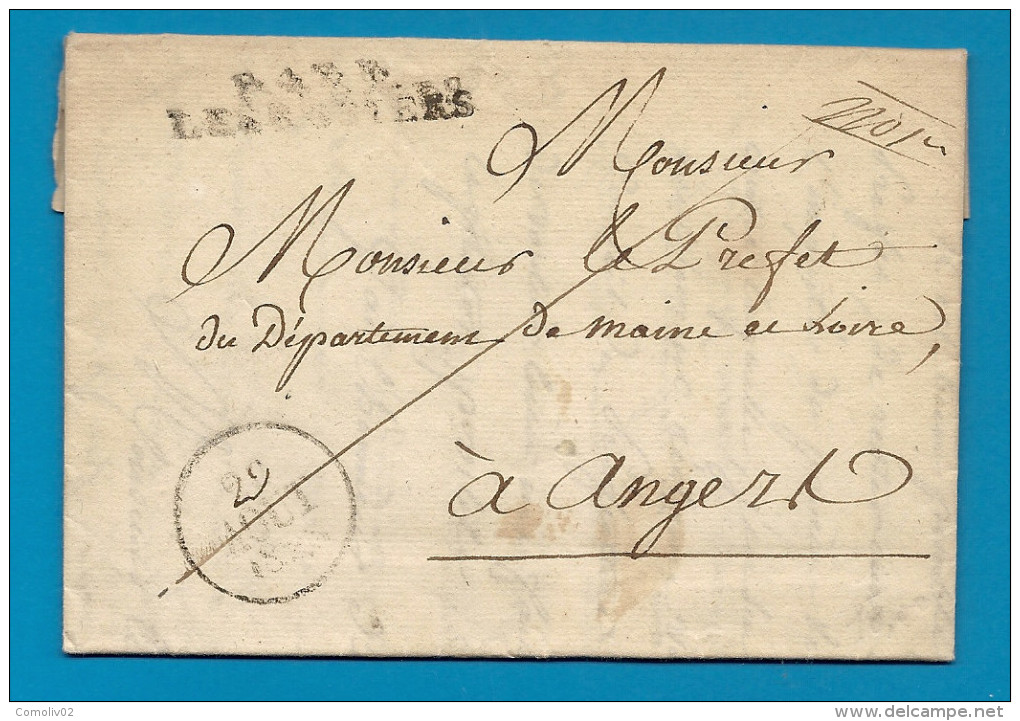 LES ROSIERS
Monsieur
Monsieur le Prefet
du Département de maine et Loire,
à Angers
29
AOUT
Comoliv02
www.delcampe.net